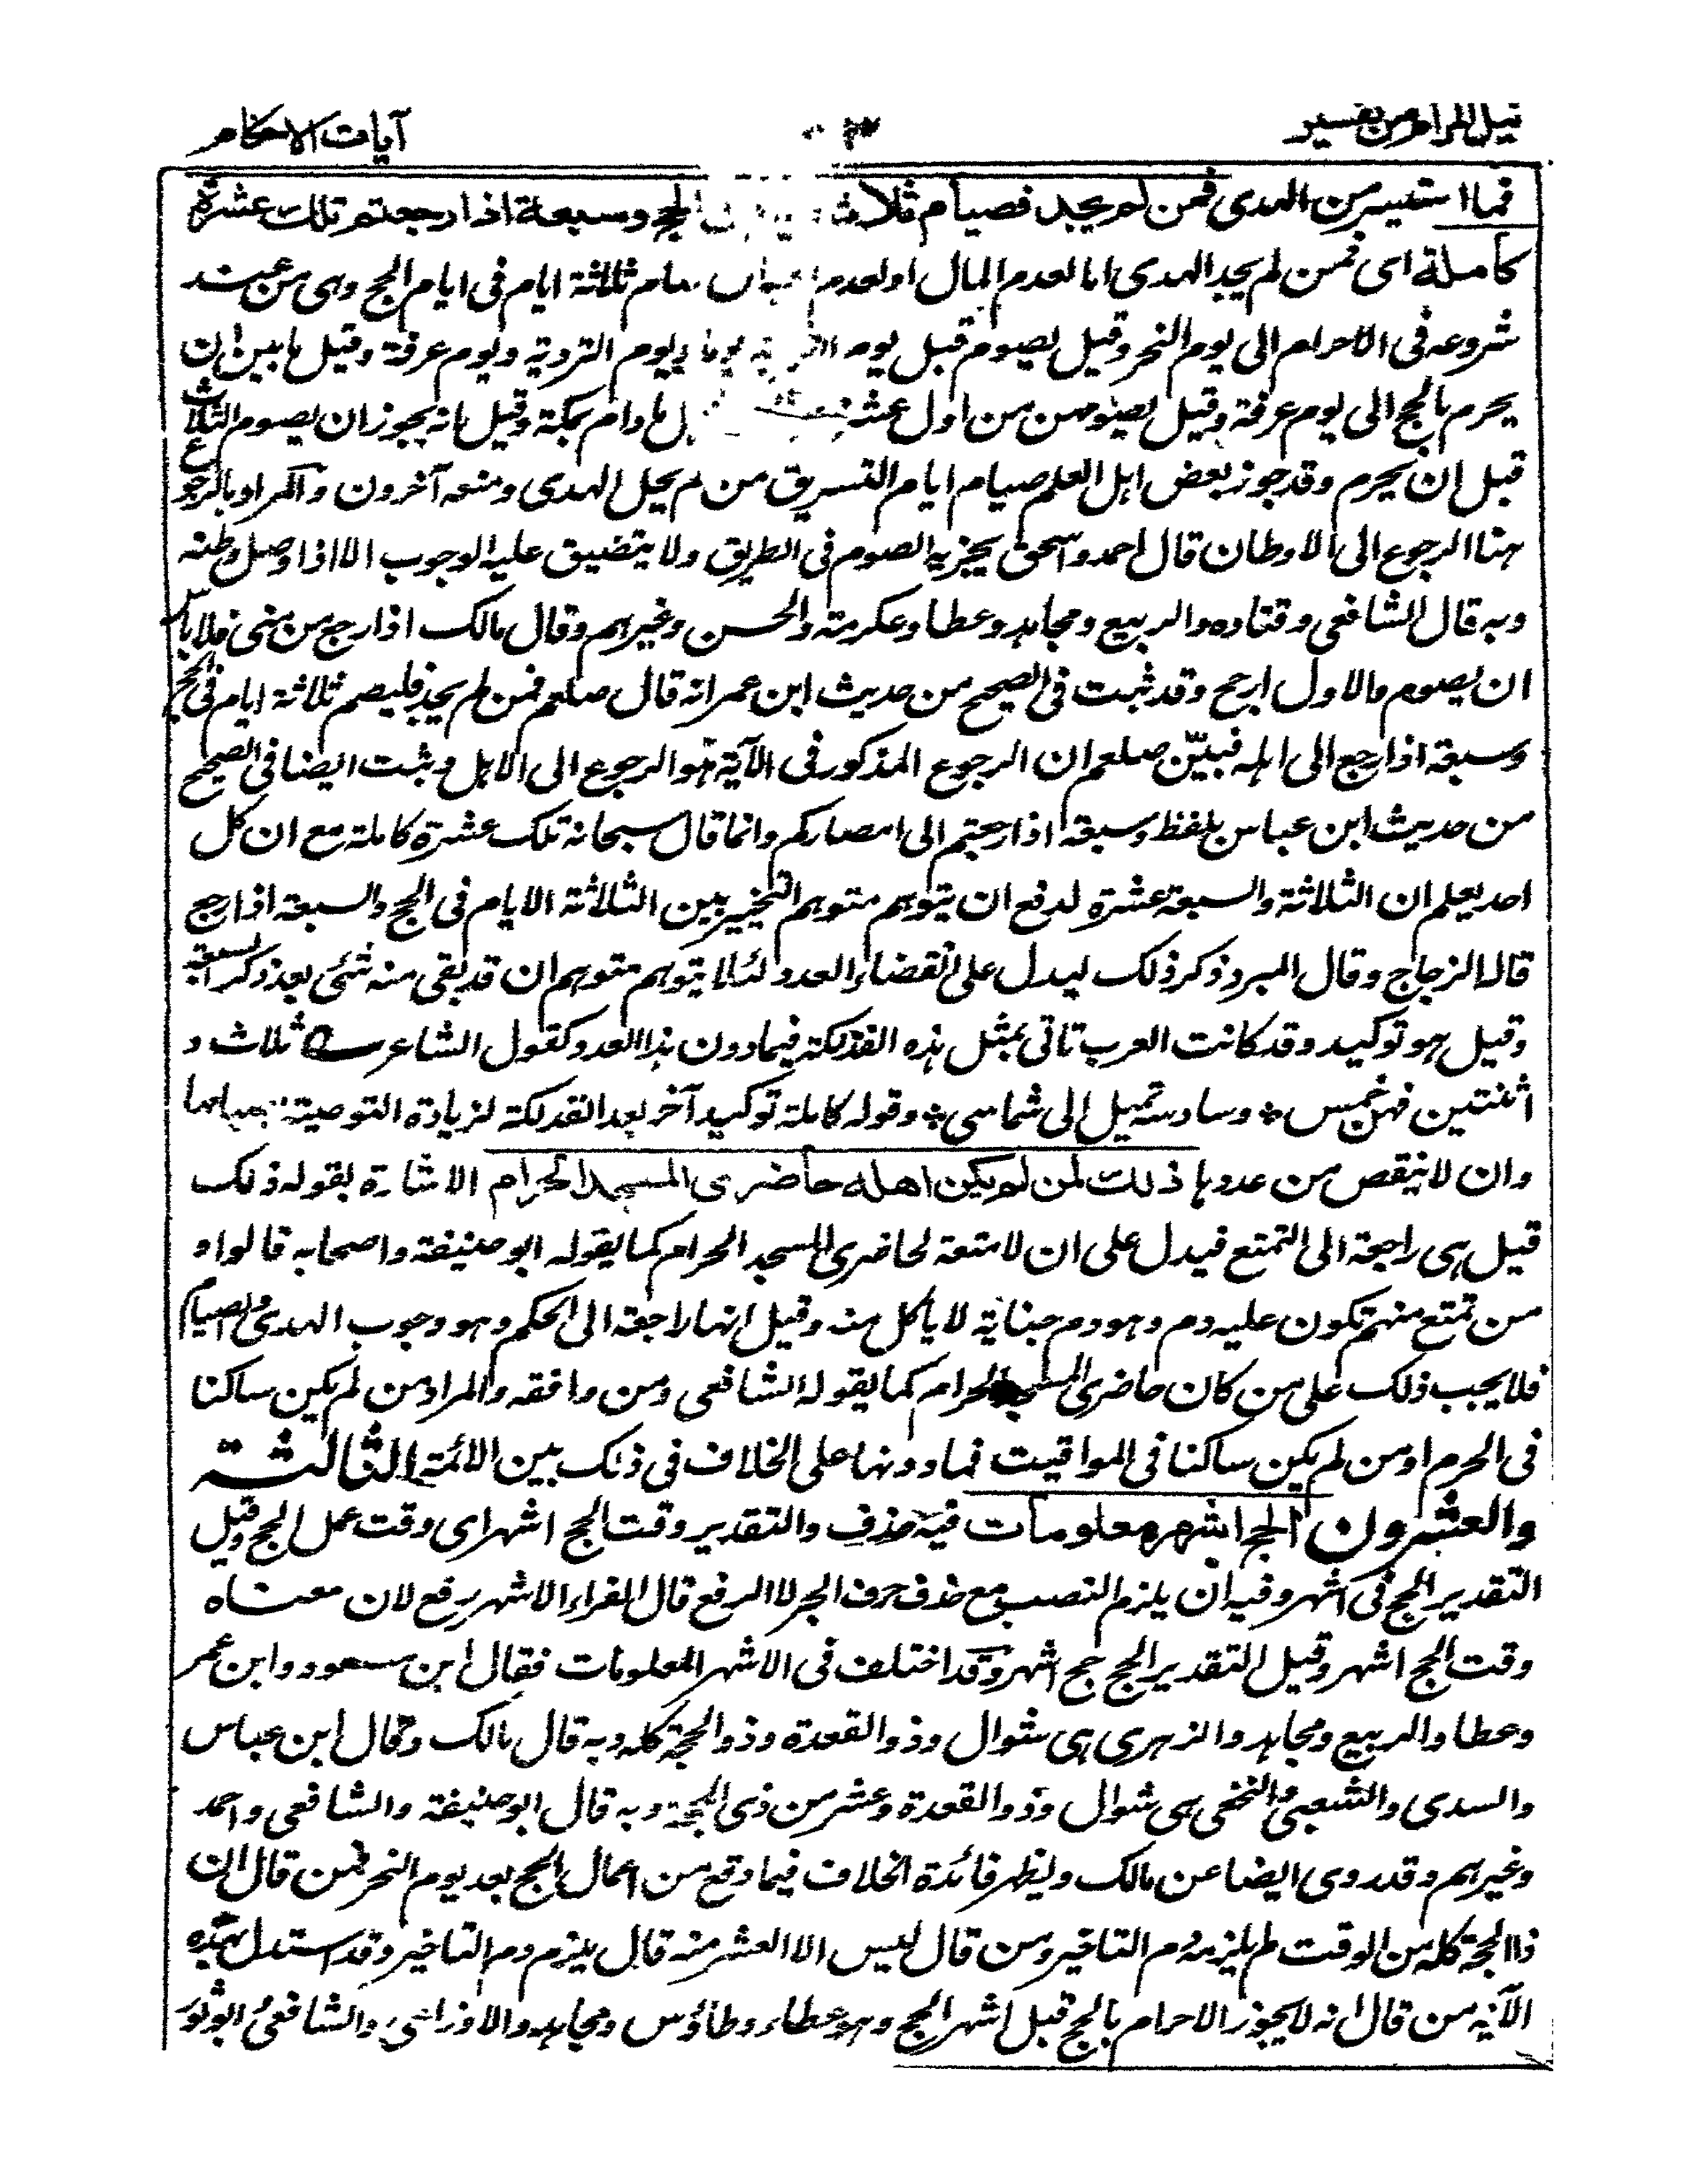 نيل المرام من تفسير
آيات الاحكام
فما استيسر من الهدى فمن لم يجد فصيام ثلاثة الحج وسبعة اذا رجعتم تلك عشرة
كاملة اى فمن لم يجد الهدى اما لعدم المال او لعدم ثلاثة ايام فى ايام الحج وهى من عند
شروعه فى الاحرام الى يوم النحر وقيل يصوم قبل يوم يوما ويوم التروية ويوم عرفة وقيل ما بين ان
يحرم بالحج الى يوم عرفة وقيل يصومهن من اول عشر ما دام بمكة وقيل انه يجوز ان يصوم الثلاث
قبل ان يحرم وقد جوز بعض اهل العلم صيام ايام التشريق من لم يجل الهدى ومنعه آخرون والمراد بالرجوع
هنا الرجوع الى الاوطان قال احمد واسحق يجزيه الصوم فى الطريق ولا يتضيق عليه الوجوب الا اذا وصل وطنه
وبه قال الشافعى وقتاده والربيع ومجاهد وعطا وعكرمة والحسن وغيرهم وقال مالك اذا رجع من منى فلا باس
ان يصوم والاول ارجح وقد ثبت فى الصحيح من حديث ابن عمر انه قال صلعم فمن لم يجد فليصم ثلاثة ايام فى الحج
وسبعة اذا رجع الى اهله فبيّن صلعم ان الرجوع المذكور فى الآية هو الرجوع الى الاهل وثبت ايضا فى الصحيح
من حديث ابن عباس بلفظ وسبعة اذا رجعتم الى امصاركم وانما قال سبحانه تلك عشرة كاملة مع ان كل
احد يعلم ان الثلاثة والسبعة عشرة لدفع ان يتوهم متوهم التخيير بين الثلاثة الايام فى الحج والسبعة اذا رجع
قاله الزجاج وقال المبرد ذكر ذلك ليدل على انقضاء العدد لئلا يتوهم متوهم ان قد بقى منه شئ بعد ذكر السبعة
وقيل هو توكيد وقد كانت العرب تاتى بمثل هذه الفذلكة فيما دون هذا العدد كقول الشاعر ثلاث و
اثنتين فهن خمس * وسادسة تميل الى شماسى * وقوله كاملة توكيد آخر بعد الفذلكة لزيادة التوصية بصيامها
وان لا ينقص من عددها ذلك لمن لم يكن اهله حاضرى المسجد الحرام الاشارة بقوله ذلك
قيل هى راجعة الى التمتع فيدل على ان لا متعة لحاضرى المسجد الحرام كما يقوله ابو حنيفة واصحابه قالوا و
من تمتع منهم تكون عليه دم وهو دم جناية لا ياكل منه وقيل انها راجعة الى الحكم وهو وجوب الهدى والصيام
فلا يجب ذلك على من كان حاضرى المسجد الحرام كما يقوله الشافعى ومن وافقه والمراد من لم يكن ساكنا
فى الحرم او من لم يكن ساكنا فى المواقيت فما دونها على الخلاف فى ذلك بين الائمة الثالثة
والعشرون الحج اشهر معلومات فيه حذف والتقدير وقت الحج اشهر اى وقت عمل الحج وقيل
التقدير الحج فى اشهر وفيه ان يلزم النصب مع حذف حرف الجر لا الرفع قال الفراء الاشهر رفع لان معناه
وقت الحج اشهر وقيل التقدير الحج حج اشهر وقد اختلف فى الاشهر المعلومات فقال ابن مسعود وابن عمر
وعطا والربيع ومجاهد والزهرى هى شوال وذو القعدة وذو الحجة كله وبه قال مالك وقال ابن عباس
والسدى والشعبى والنخعى هى شوال وذو القعدة وعشر من ذى الحجة وبه قال ابو حنيفة والشافعى واحمد
وغيرهم وقد روى ايضا عن مالك ويظهر فائدة الخلاف فيما وقع من اعمال الحج بعد يوم النحر فمن قال ان
ذا الحجة كله من الوقت لم يلزمه دم التاخير ومن قال ليس الا العشر منه قال يلزم دم التاخير وقد استدل بهذه
الآية من قال انه لا يجوز الاحرام بالحج قبل اشهر الحج وهو عطاء وطاؤس ومجاهد والاوزاعى والشافعى وابو ثور